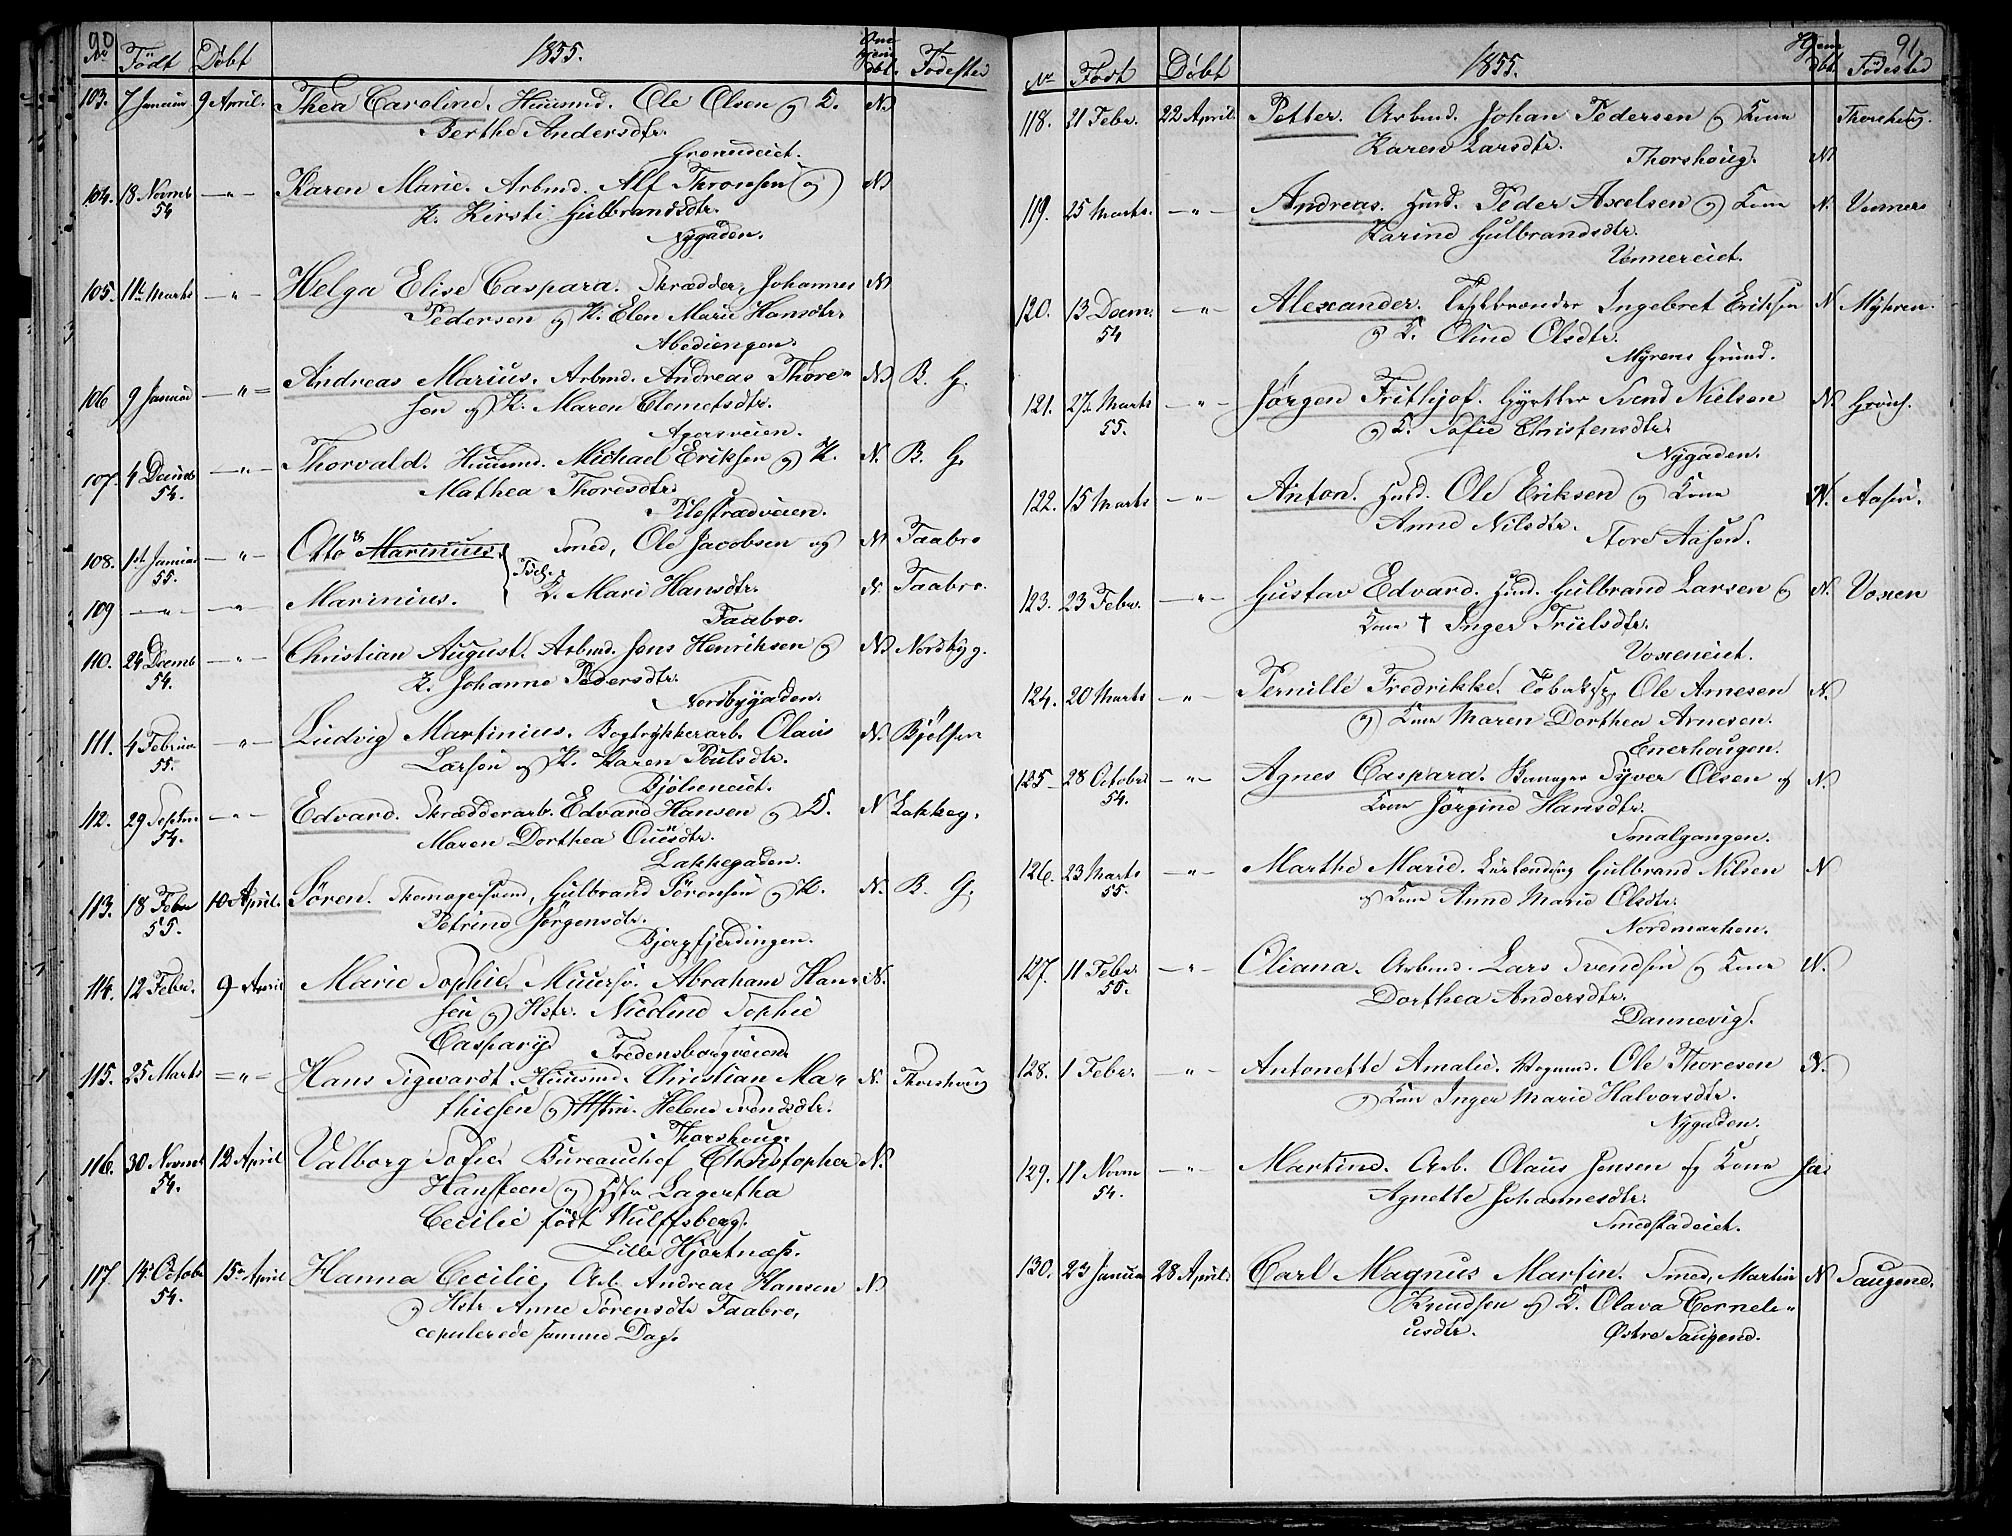 90
No Født Døbt 1855. Fødested
103. 7 Januar 9 April. Thea Caroline. Huusmd. Ole Olsen og K. N
Berthe Andersdtr.
Grønneiet.
104. 18 Novmb 54 — " — Karen Marie. Arbmd. Alf Thronsen og N
K. Kirsti Gulbrandsdtr.
Nygaden.
105. 11te Marts — " — Helga Elise Caspara. Skrædder, Johannes N
Pedersen og K. Elen Marie Hansdtr.
Abediengen.
106 9 Januar — " — Andreas Marius. Arbmd. Andreas Thore- N B. G.
sen og K. Maren Clemetsdtr.
Agersveien.
107. 4 Decmb 54. — " — Thorvald. Huusmd. Michael Eriksen og K. N. B. G.
Mathea Thoresdtr.
Pilestrædveien.
108. 1ste Januar 55. — " — Otto Marinius. Smed, Ole Jacobsen og N Taabro
Tvil. K. Mari Hansdtr.
109 — " — — " — Marinius. N. Taabro.
Taabro.
110. 24 Decmb 54. — " — Christian August. Arbmd. Jens Henriksen og N Nordbyg.
K. Johanne Pedersdtr.
Nordbygaden.
111. 4 Februar 55. — " — Ludvig Martinius. Bogtrykkerarb. Olaus N. Bjølsen
Larsen og K. Karen Poulsdtr.
Bjølseneiet.
112. 29 Septm 54. — " — Edvard. Skrædderarb. Edvard Hansen og K. N Lakkeg.
Maren Dorthea Ouesdtr.
Lakkegaden.
113. 18 Febr 55. 10 April. Søren. Skomagersvend, Gulbrand Sørensen og K. N. B. G.
Petrine Jørgensdtr.
Bjergfjerdingen.
114. 12 Febr. 9 April Marie Sophie. Muursv. Abraham Han- N.
sen og Hstr. Nicoline Sophie
Caspary. Fredensborgveien.
115. 25 Marts = " = Hans Sigwardt. Huusmd. Christian Ma- N. Thorshoug
thiesen og Hstru. Helene Svendsdtr.
Thorshoug.
116. 30 Novmb 54. 12 April Valborg Sofie. Bureauchef Christopher N.
Hansteen og Hstr Lagertha
Cecilie født Wulffsberg.
Lille Hjortnæs.
117. 14 Octobr 54. 15 April Hanna Cecilie, Arb. Andreas Hansen N
og Hstr Anne Sørensdtr Taabro,
copulerede samme Dag.
91
No Født Døbt 1855. Hjemdbt. Fødested
118. 21 Febr. 22 April. Petter. Arbmd. Johan Pedersen og Kone Thorshoug.
Karen Larsdtr.
Thorshoug. N
119. 25 Marts. — " — Andreas. Husd. Peder Axelsen og Kone N. Vennere
Karine Gulbrandsdtr.
Vennereiet.
120. 13 Decm. 54 — " — Alexander. Teglbrænder Ingebret Eriksen N Myhren.
og K. Oline Olsdtr.
Myrens Grund.
121. 27 Marts 55. — " — Jørgen Frithjof. Gyrtler Svend Nielsen N. Grønl.
og K. Sofie Christensdtr.
Nygaden.
122. 15 Marts — " — Anton. Husd. Ole Eriksen og Kone N. Aasen.
Anne Nilsdtr.
Store Aasen.
123. 23 Febr. — " — Gustav Edvard. Husd. Gulbrand Larsen og N. Voxen
Kone † Inger Trulsdtr.
Voxeneiet.
124. 20 Marts — " — Pernille Fredrikke. Ole Arnesen N.
og Kone Maren Dorthea Arnesen.
Enerhougen.
125 28 Octobr 54. — " — Agnes Caspara. Syver Olsen og N.
Kone Jørgine Hansdtr.
Smalgangen.
126. 23 Marts 55. — " — Marthe Marie. Gulbrand Nilsen N
og Kone Anne Marie Olsdtr.
Nordmarken.
127. 11 Febr. 55. — " — Oliana. Arbmd. Lars Svendsen og Kone N.
Dorthea Andersdtr.
Dannevig.
128. 1 Febr. — " — Antonette Amalie. Vognmd. Ole Thoresen N.
og Kone Inger Marie Halvorsdtr.
Nygaden.
129. 11 Novm 54. — " — Martine. Arb. Olaus Jensen og Kone Ja
Agnette Johannesdtr.
Smestadeiet.
130. 23 Januar 28 April. Carl Magnus Martin. Smed, Martin N Saugene.
Knudsen og K. Olava Corneli-
usdtr. Østre Saugene.